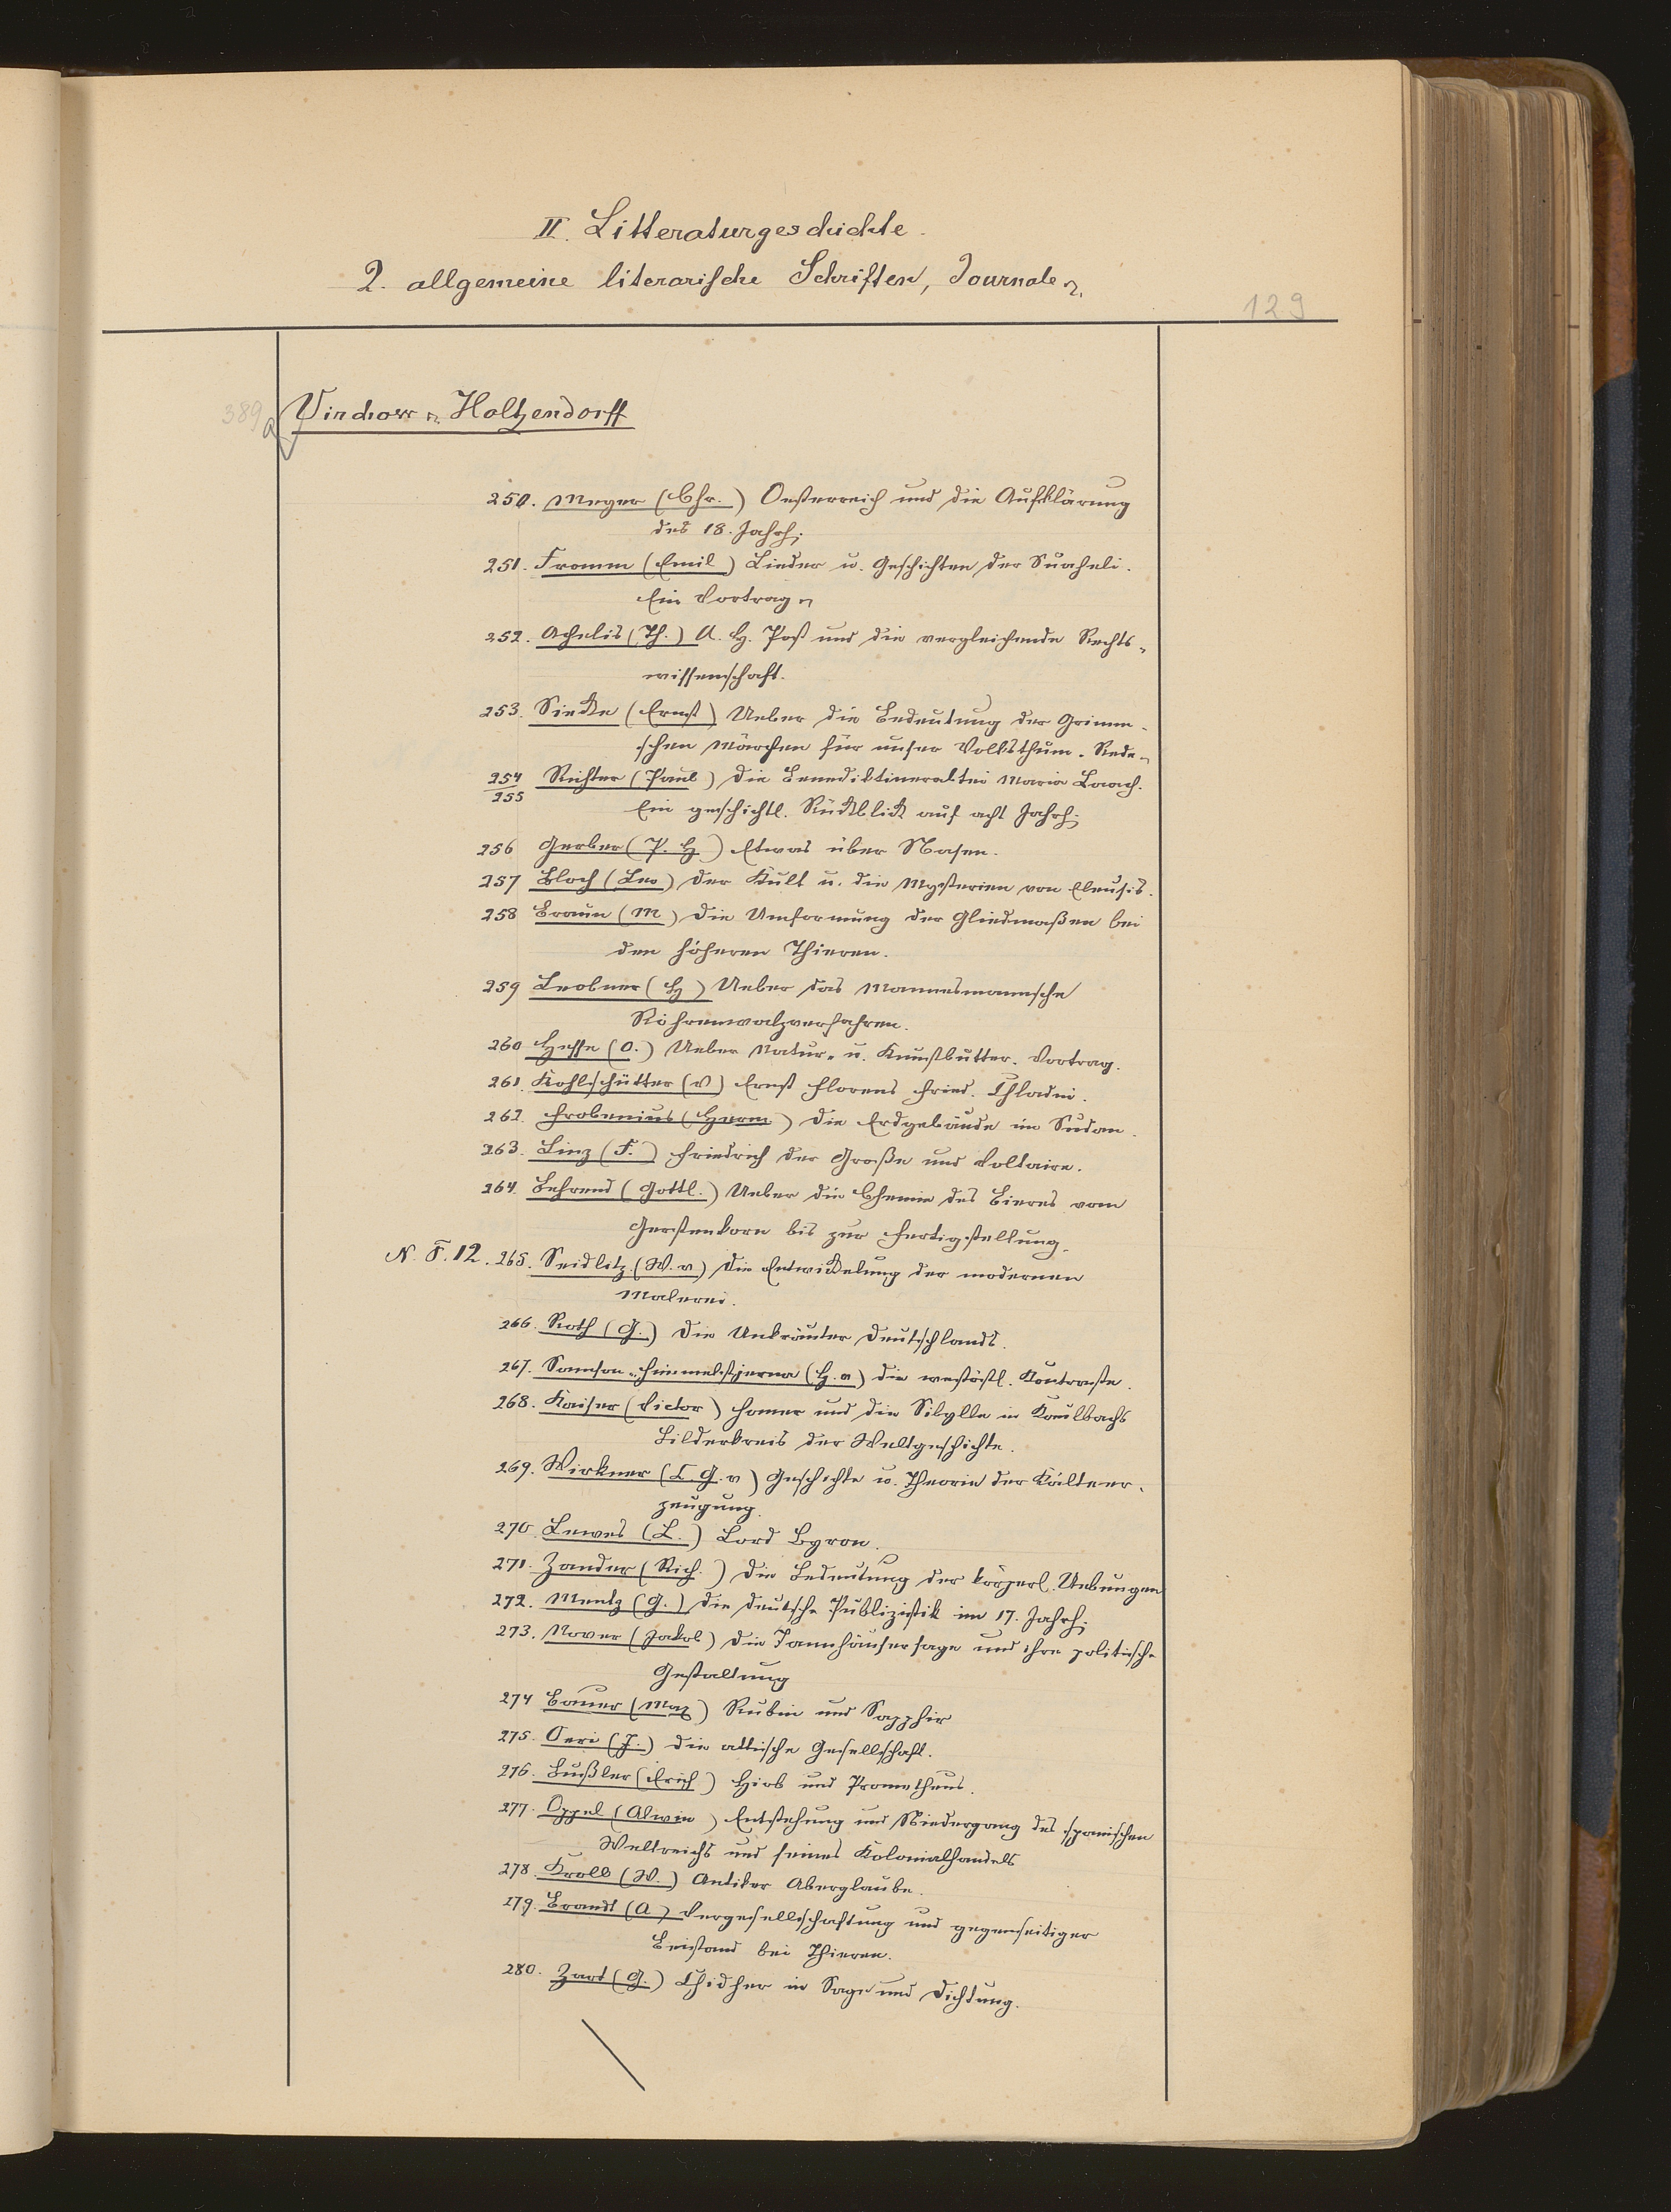 II. Litteraturgeschichte.
2. allgemeine literarische Schriften, Journale
129
389a
Virchow u. Holtzendorff
250. Meyer (Chr.) Oesterreich und die Aufklärung
des 18. Jahrh.
251. Fromm (Emil) Lieder u. Geschichten der Suaheli.
Ein Vortrag
252. Achelis (Th.) A. H. Post und die vergleichende Rechts-
wissenschaft.
253. Siecke (Ernst) Ueber die Bedeutung der Grimm-
schen Märchen für unser Volksthum. Rede.
254/255 Richter (Paul) Die Benediktinerabtei Maria Laach.
Ein geschichtl. Rückblick auf acht Jahrh.
256 Gerber (P. H.) Etwas über Nasen.
257 Bloch (Leo) Der Kult u. die Mysterien von Eleusis.
258 Braun (M) Die Umformung der Gliedmaßen bei
den höheren Thieren.
259 Leobner (H) Ueber das Mannesmannsche
Röhrenwalzverfahren.
260 Hesse (O.) Ueber Natur- u. Kunstbutter. Vortrag.
261. Kohlschütter (V) Ernst Florens Fried. Chladni.
262. Frobenius (Herm) Die Erdgebäude im Sudan.
263. Linz (F.) Friedrich der Große und Voltaire.
264. Behrend (Gottl.) Ueber die Chemie des Bieres vom
Gerstenkorn bis zur Fertigstellung.
N. F. 12. 265. Seidlitz (W. v.) Die Entwickelung der modernen
Malerei.
266. Roth (G.) Die Unkräuter Deutschlands.
267. Samson-Himmelstjerna (H. v) die westöstl. Kontraste.
268. Kaiser (Victor) Homer und die Sibylle in Kaulbachs
Bilderkreis der Weltgeschichte.
269. Wirkner (C. G. v) Geschichte u. Theorie der Kälteer-
zeugung.
270. Lewes (L.) Lord Byron.
271. Zander (Rich.) Die Bedeutung der körperl. Uebungen
272. Mentz (G.) Die deutsche Publizistik im 17. Jahrh.
273. Nover (Jakob) Die Tannhäusersage und ihre politische
Gestaltung
274 Bauer (Max) Rubin und Sapphir
275. Oeri (J.) die attische Gesellschaft.
276. Bußler (Erich) Hiob und Prometheus.
277. Oppel (Alwin) Entstehung und Niedergang des spanischen
Weltreichs und seines Kolonialhandels
278. Kroll (W.) Antiker Aberglaube.
179. Brandt (A.) Vergesellschaftung und gegenseitiger
Beistand bei Thieren.
280. Zart (G.) Chidher in Sage und Dichtung.